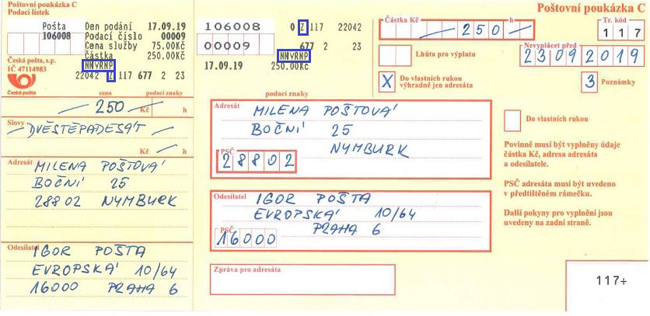 Poštovní poukázka C
Podací lístek
Pošta
106008
Den podání 17.09.19
Podací číslo 00009
Cena služby 75.00Kč
Částka 250.00Kč
NNVRNP
22042 2 117 677 2 23
Česká pošta, s.p.
IČ 47114983
Česká pošta
cena podací znaky
— 250 —
Kč h
Slovy
— DVĚSTĚPADESÁT —
Adresát
MILENA POŠTOVÁ
BOČNÍ 25
28802 NYMBURK
Odesílatel
IGOR POŠTA
EVROPSKÁ 10/64
16000 PRAHA 6
106008 0 2 117 22042
00009 677 2 23
NNVRNP
17.09.19 250.00Kč
podací znaky
Poštovní poukázka C
Částka Kč h
— 250 —
Tr. kód
117
Lhůta pro výplatu
Nevyplácet před
23092019
X Do vlastních rukou
výhradně jen adresáta
3 Poznámky
Adresát
MILENA POŠTOVÁ
BOČNÍ 25
NYMBURK
PSČ
28802
Do vlastních rukou
Povinně musí být vyplněny údaje
částka Kč, adresa adresáta
a odesílatele.
PSČ adresáta musí být uvedeno
v předtištěném rámečku.
Další pokyny pro vyplnění jsou
uvedeny na zadní straně.
Odesílatel
IGOR POŠTA
EVROPSKÁ 10/64
PRAHA 6
PSČ
16000
Zpráva pro adresáta
117+